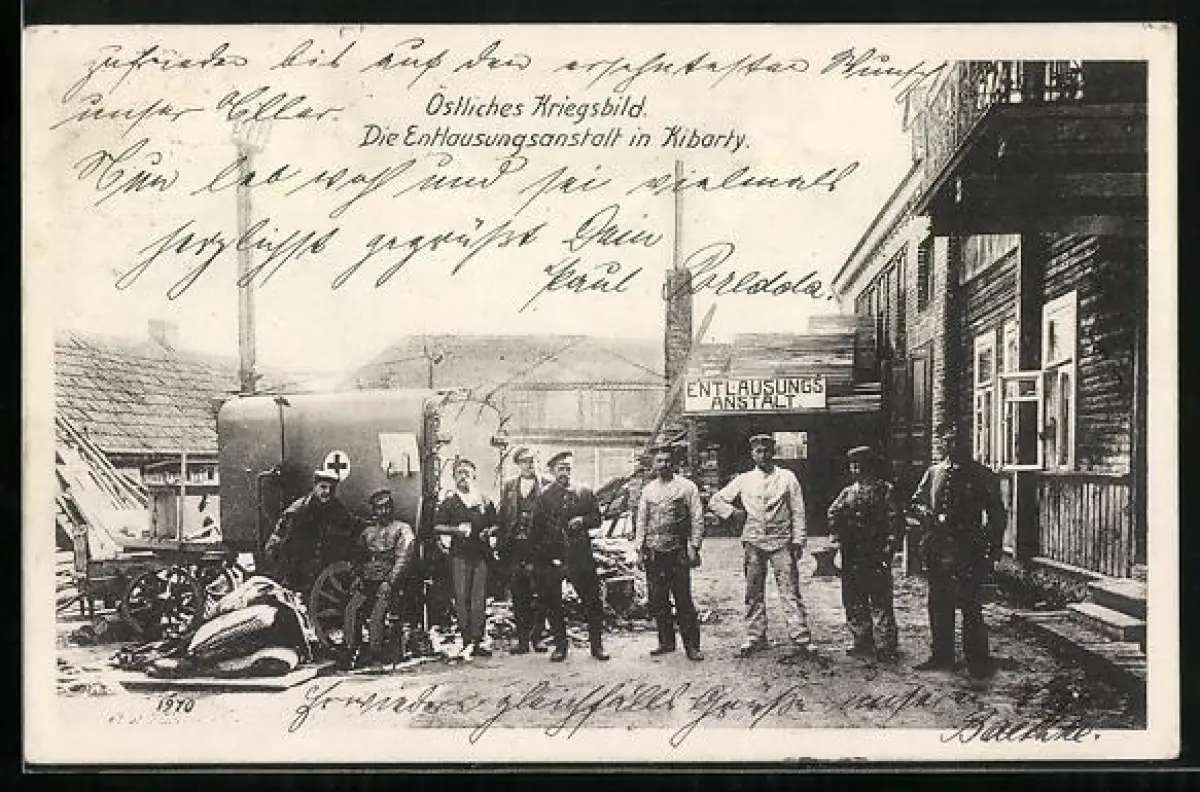 zufrieden bis auf den ersehntesten Wunsch
unser Aller.
Östliches Kriegsbild.
Die Entlausungsanstalt in Kibarty.
Nun leb wohl und sei vielmals
herzlichst gegrüßt Dein
Paul
ENTLAUSUNGS
ANSTALT
1970
Erwidere gleichfalls Grüße